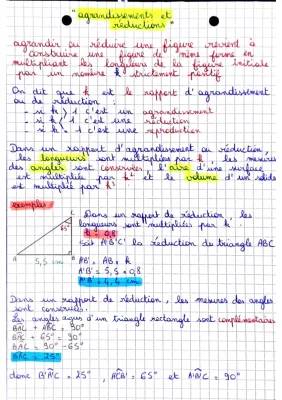 "agrandissements et
réductions"
agrandir ou réduire une figure revient à
construire une figure de même forme en
multipliant les longueurs de la figure initiale
par un nombre k strictement positif
On dit que k est le rapport d'agrandissement
ou de réduction
- si k > 1 c'est un agrandissement
- si k < 1 c'est une réduction
- si k = 1 c'est une reproduction
Dans un rapport d'agrandissement ou réduction,
les longueurs sont multipliées par k, les mesures
des angles sont conservées, l'aire d'une surface
est multipliée par k² et le volume d'un solide
est multiplié par k³
exemple:
C
65°
A
5,5 cm
B
Dans un rapport de réduction les
longueurs sont multipliées par k
k = 0,8
soit A'B'C' la réduction du triangle ABC
A'B' = AB × k
A'B' = 5,5 × 0,8
A'B' = 4,4 cm
Dans un rapport de réduction, les mesures des angles
sont conservées.
Les angles aigus d'un triangle rectangle sont complémentaires
BAC + = 90°
+ 65° = 90°
BAC = 90° - 65°
BAC = 25°
donc B'A'C' = 25°, A'C'B' = 65° et = 90°